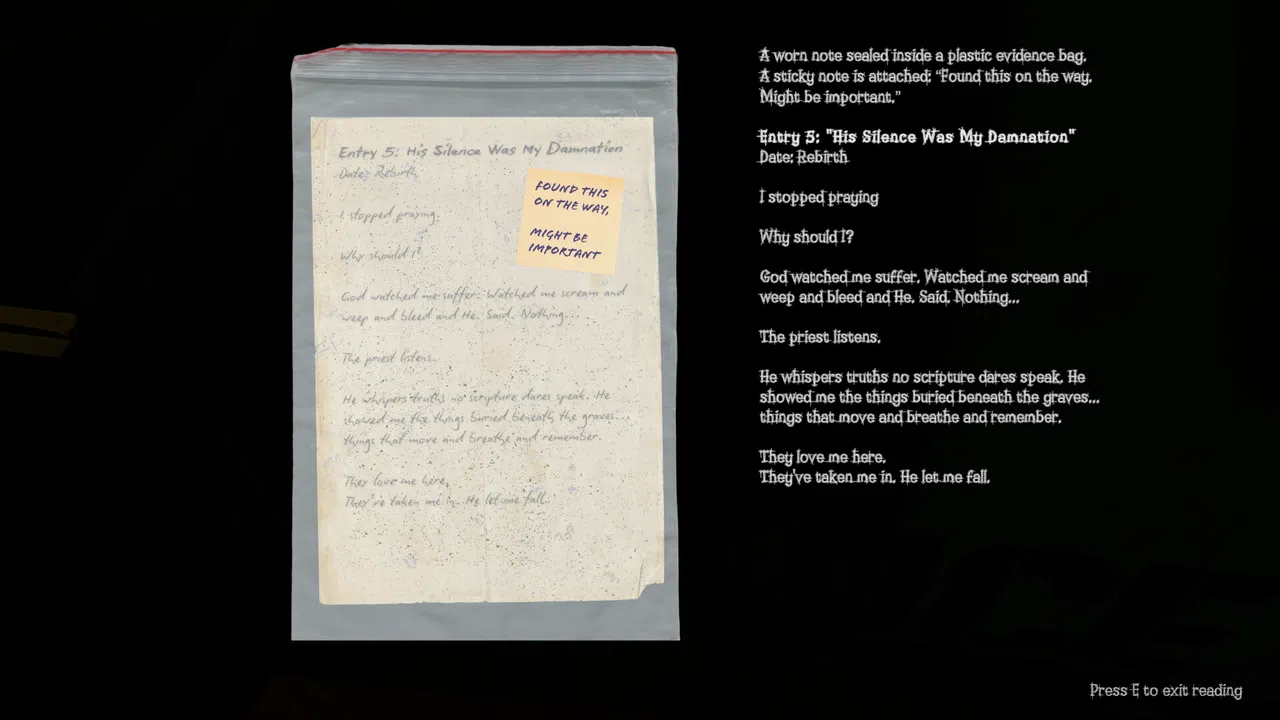 Entry 5: His Silence Was My Damnation
Date: Rebirth
FOUND THIS
ON THE WAY,
MIGHT BE
IMPORTANT
I stopped praying.
Why should I?
God watched me suffer. Watched me scream and
weep and bleed and He. Said. Nothing...
The priest listens.
He whispers truths no scripture dares speak. He
showed me the things buried beneath the graves...
things that move and breathe and remember.
They love me here.
They've taken me in. He let me fall.
A worn note sealed inside a plastic evidence bag.
A sticky note is attached: "Found this on the way.
Might be important."
Entry 5: "His Silence Was My Damnation"
Date: Rebirth
I stopped praying
Why should I?
God watched me suffer. Watched me scream and
weep and bleed and He. Said. Nothing...
The priest listens.
He whispers truths no scripture dares speak. He
showed me the things buried beneath the graves...
things that move and breathe and remember.
They love me here.
They've taken me in. He let me fall.
Press E to exit reading